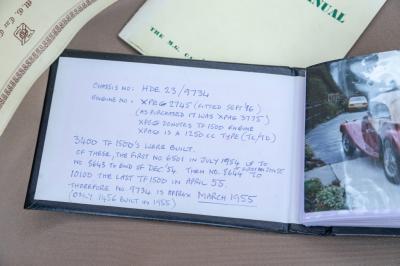 M. G. Car C
MANUAL
THE M.G. CA
CHASSIS NO: HDE 23/9734
ENGINE NO: XPEG 2745 (FITTED SEPT '86)
(AS PURCHASED IT WAS XPAG 3775)
XPEG DENOTES TF1500 ENGINE
XPAG IS A 1250 CC TYPE (TC/TD)
3400 TF 1500'S WERE BUILT.
OF THESE, THE FIRST NO. 6501 IN JULY 1954 UP TO
NO 8643 TO END OF DEC '54. THEN NO. 8644 TO
10100 THE LAST TF1500 IN APRIL 55.
THEREFORE NO. 9734 IS APPROX MARCH 1955
(ONLY 1456 BUILT IN 1955)